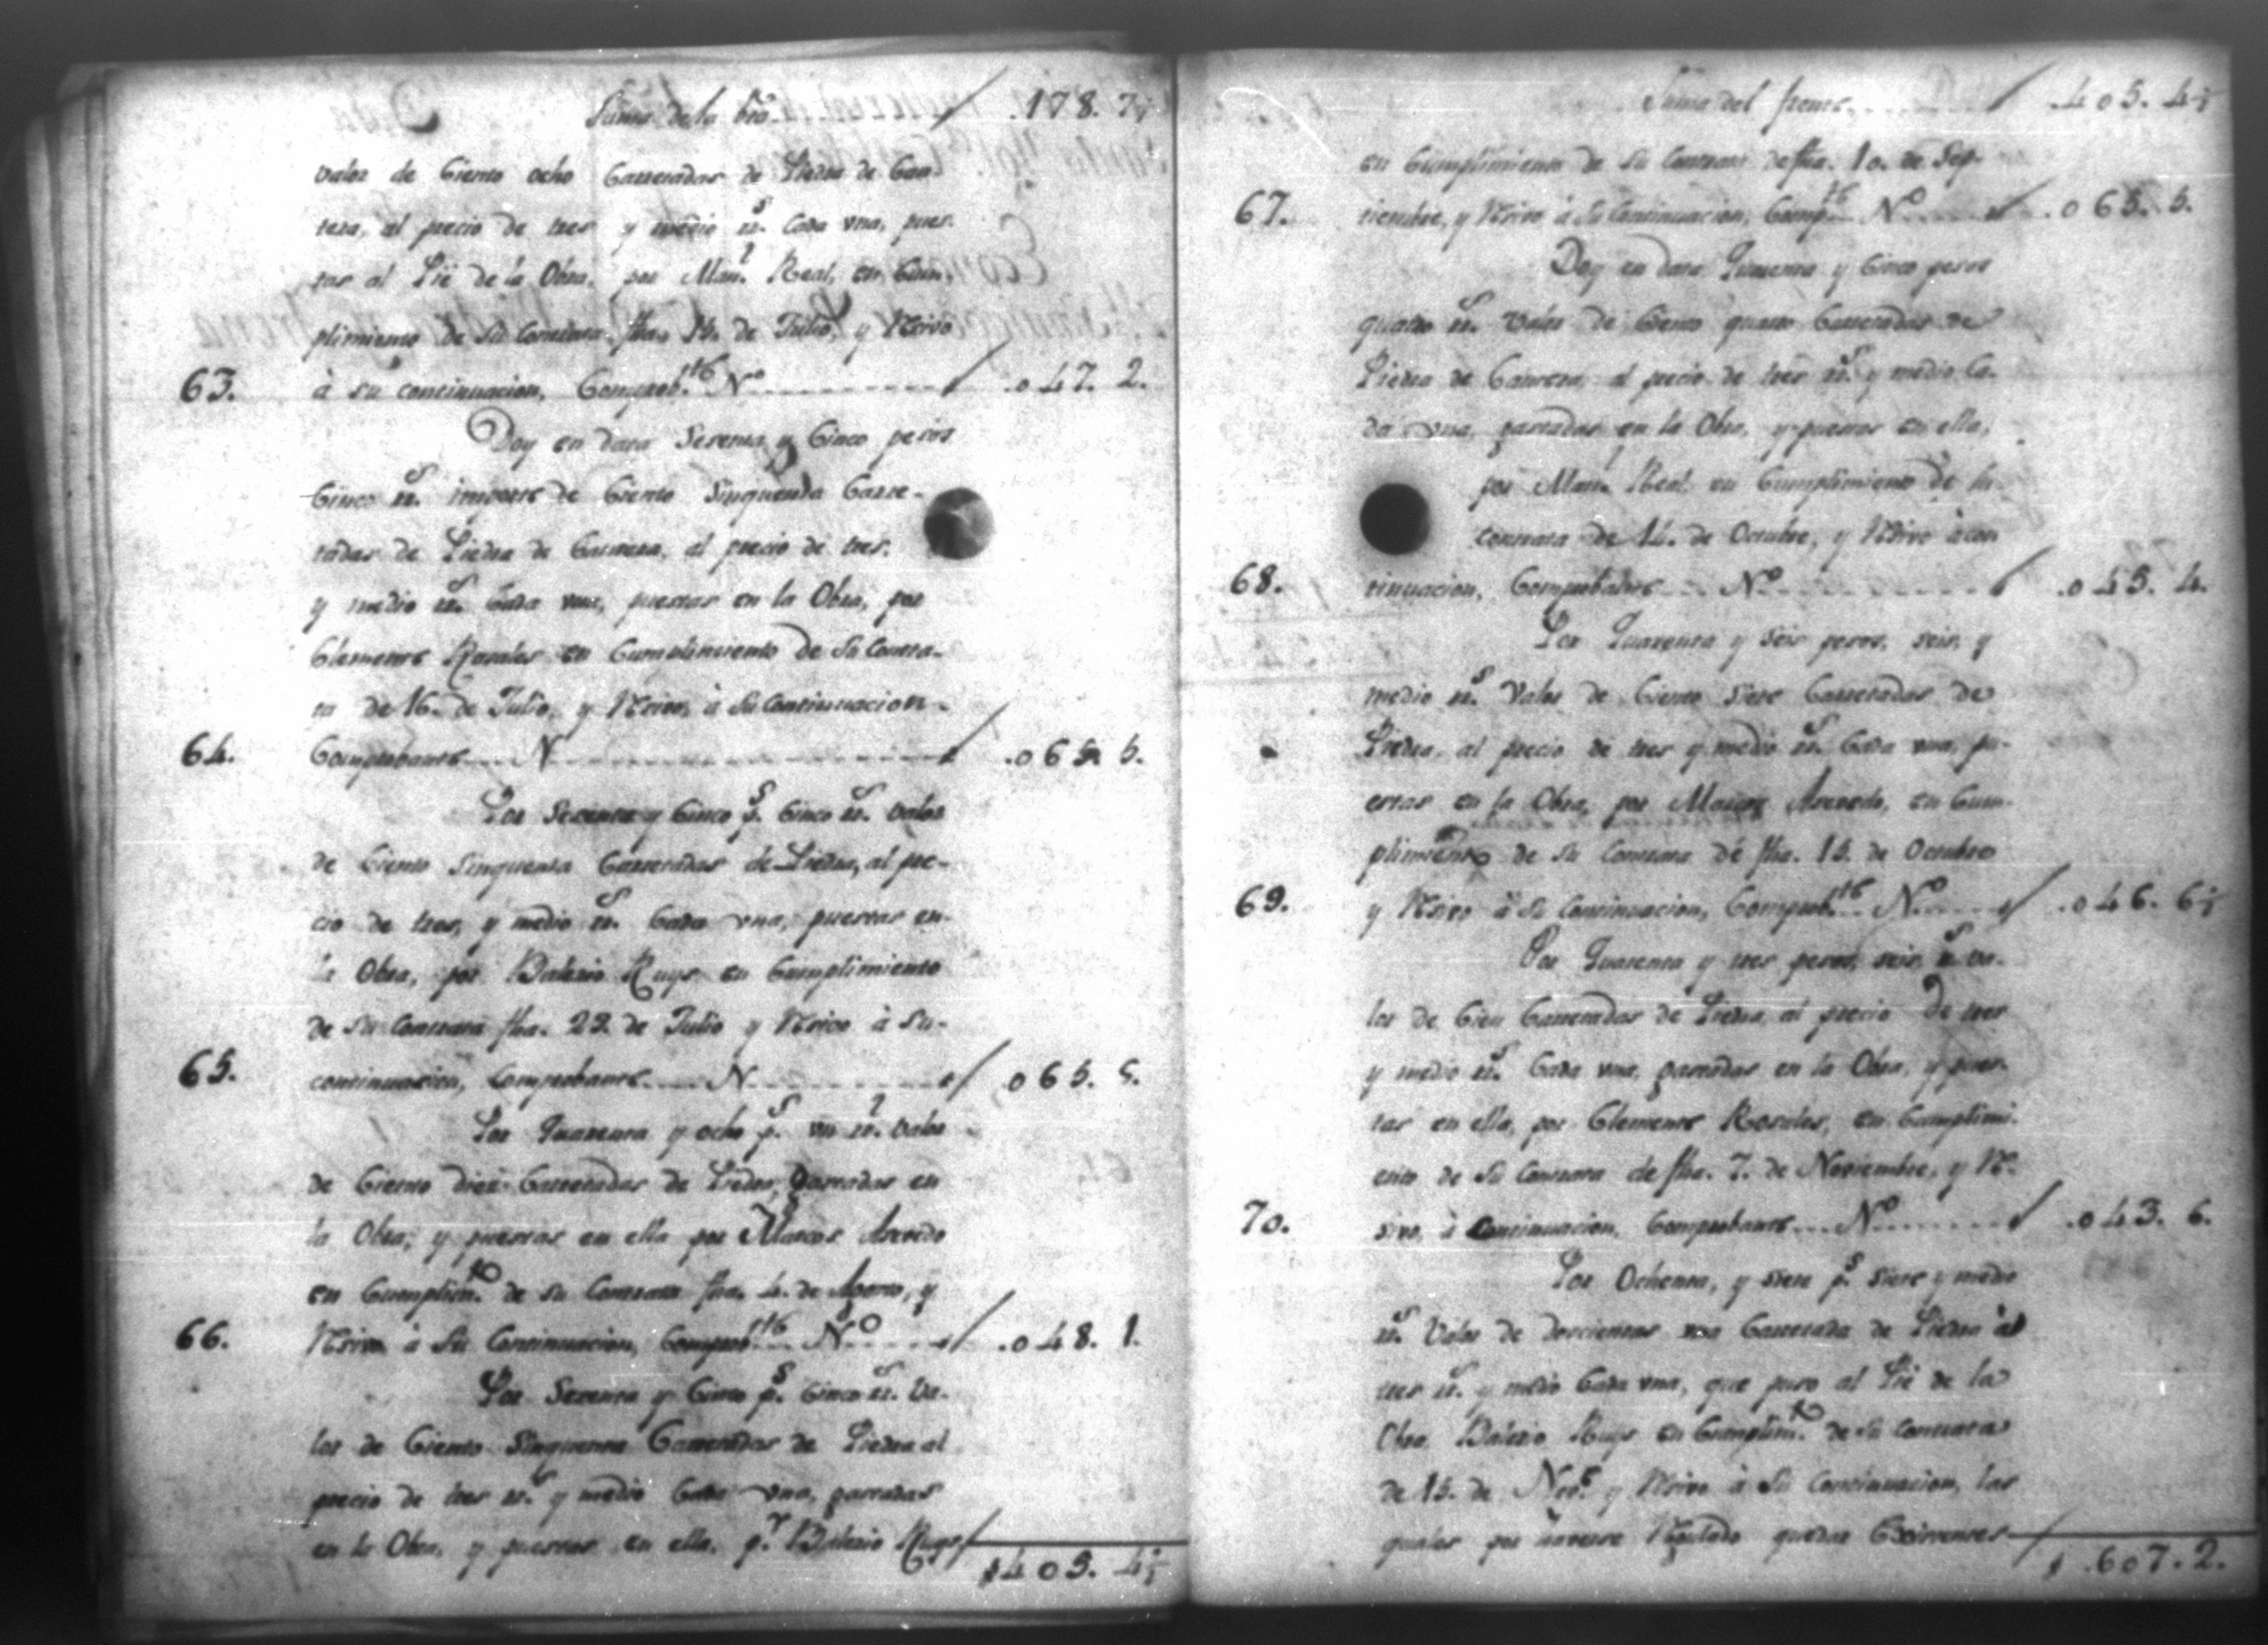 Suma de la bta. 178. 7½
valor de Ciento ocho Carretadas de Piedra de Can-
tera, al precio de tres y medio rr.s Cada vna, pues-
tas al Pie de la Obra, por Man.l Real, en Cum-
plimiento de su Contrata fha. 14. de Julio, y Reivo
63. à su continuacion, Comprob.te N.o 047. 2.
Doy en data Sesenta y Cinco pesos
Cinco rr.s importe de Ciento Sinquenta Carre-
tadas de Piedra de Cantera, al precio de tres,
y medio rr.s Cada vna, puestas en la Obra, por
Clemente Rosales en Cumplimiento de su Contra-
ta de 16. de Julio, y Reivo, à su Continuacion
64. Comprobante N 065. 5.
Por Sesenta y Cinco p.s Cinco rr.s valor
de Ciento Sinquenta Carretadas de Piedra, al pre-
cio de tres, y medio rr.s Cada vna, puestas en
la Obra, por Balerio Ruys en Cumplimiento
de su Contrata fha. 23. de Julio y Reivo à su
65. continuacion, Comprobante N 065. 5.
Por Quarenta y ocho p.s vn rr.l valor
de Ciento diez Carretadas de Piedra, parradas en
la Obra, y puestas en ella por Marcos Asevedo
en Cumplim.to de su Contrata fha. 4. de Agosto, y
66. Reivo à su Continuacion, Comprob.te N.o 048. 1.
Por Sesenta y Cinco p.s Cinco rr.s va-
lor de Ciento Sinquenta Carretadas de Piedra al
precio de tres rr.s y medio Cada vna, parradas
en la Obra, y puestas en ella, p.r Balerio Ruys
$405. 4½
Suma del frente 405. 4½
en Cumplimiento de su Contrata de fha. 10. de Sep-
67. tiembre, y Reivo à su Continuacion, Comp.te N.o 065. 5.
Doy en data Quarenta y Cinco pesos
quatro rr.s valor de Ciento quatro Carretadas de
Piedra de Cantera, al precio de tres rr.s y medio Ca-
da vna, parradas en la Obra, y puestas en ella,
por Man.l Real en Cumplimiento de su
contrata de 14. de Octubre, y Reivo à con
68. tinuacion, Comprobante N.o 045. 4.
Por Quarenta y Seis pesos, seis, y
medio rr.s Valor de Ciento Siete Carretadas de
Piedra, al precio de tres y medio rr.s Cada vna, pu-
estas en la Obra, por Marcos Asevedo, en Cum-
plimiento de su Contrata de fha. 15. de Octubre
69. y Reivo à su Continuacion, Comprob.te N.o 046. 6½
Por Quarenta y tres pesos, seis rr.s va-
lor de Cien Carretadas de Piedra, al precio de tres
y medio rr.s Cada vna, parradas en la Obra, y pues-
tas en ella, por Clemente Rosales, en Cumplimi-
ento de su Contrata de fha. 7. de Noviembre, y Re-
70. sivo, à Continuacion, Comprobante N.o 043. 6.
Por Ochenta, y siete p.s Siete y medio
rr.s Valor de dorcientas vna Carretada de Piedra al
tres rr.s y medio Cada vna, que puso al Pie de la
Obra Balerio Ruys en Cumplim.to de su contrata
de 15. de Nov.e y Reivo à su Continuacion, las
quales por averse quedar Existentes
$ .607. 2.